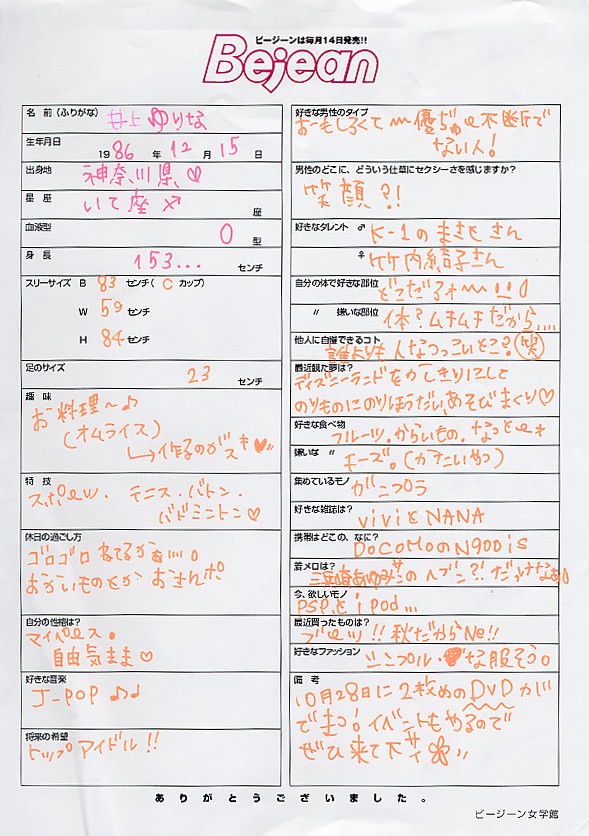 ビージーンは毎月14日発売!!
Bejean
名 前(ふりがな) 井上ゆりな
生年月日
1986年12月15日
出身地 神奈川県、♡
星 座 いて座♐ 座
血液型 O型
身 長 153...センチ
スリーサイズ B 83センチ(Cカップ)
W 59センチ
H 84センチ
足のサイズ 23センチ
趣 味
お料理~♪
(オムライス)
↳作るのがスキ♥
特 技
スポーツ.テニス.バトン.
バドミントン♡
休日の過ごし方
ゴロゴロねてるかぁ
おかいものとか おさんポ
自分の性格は?
マイペース。
自由気まま♡
好きな音楽
J-POP♪♪
将来の希望
トップアイドル!!
好きな男性のタイプ
おーもしろくて優ぢゅー不断で
ない人!
男性のどこに、どういう仕草にセクシーさを感じますか?
笑顔?!
好きなタレント ♂ K-1のまさとさん
♀ 竹内結子さん
自分の体で好きな部位 どこだろぉ
〃 嫌いな部位 体?ムチムチだから....
他人に自慢できるコト
誰よりも人なつっこいとこ?(笑)
最近観た夢は?
ディズニーランドをかしきりにして
のりものにのりほうだい,あそびまくり♡
好きな食べ物
フルーツ.からいもの.なっとーぉ
嫌いな 〃 チーズ。(かたいやつ)
集めているモノ がにっぷう
好きな雑誌は? viviとNANA
携帯はどこの、なに?
DoCoMoのN900is
着メロは?
今、欲しいモノ
PSPとipod...
最近買ったものは?
ブーツ!!秋だからNe!!
好きなファッション シンプルな服そう。
備 考
10月28日に2枚めのDVDがで
でまっ!イベントもやるので
ぜひ来て下サイ
ありがとうございました。
ビージーン女学館